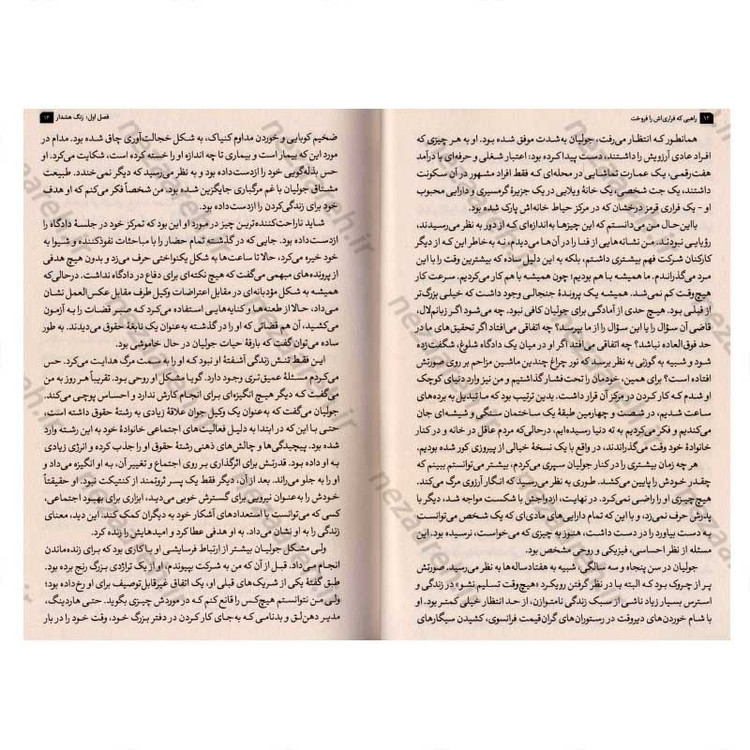 ۱۲ راهبی که فراری‌اش را فروخت
همانطور که انتظار می‌رفت، جولیان به‌شدت موفق شده بود. او به هر چیزی که
افراد عادی آرزویش را داشتند، دست پیدا کرده بود: اعتبار شغلی و حرفه‌ای با درآمد
هفت‌رقمی، یک عمارت تماشایی در محله‌ای که فقط افراد مشهور در آن سکونت
داشتند، یک جت شخصی، یک خانهٔ ویلایی در یک جزیرهٔ گرمسیری و دارایی محبوب
او - یک فراری قرمز درخشان که در مرکز حیاط خانه‌اش پارک شده بود.
بااین‌حال من می‌دانستم که این چیزها به‌اندازه‌ای که از دور به نظر می‌رسیدند،
رؤیایی نبودند. من نشانه‌هایی از فنا را در آن‌ها می‌دیدم، نه به‌خاطر این که از دیگر
کارکنان شرکت فهم بیشتری داشتم، بلکه به این دلیل ساده که بیشترین وقت را با این
مرد می‌گذراندم. ما همیشه با هم بودیم؛ چون همیشه با هم کار می‌کردیم. سرعت کار
هیچ‌وقت کم نمی‌شد. همیشه یک پروندهٔ جنجالی وجود داشت که خیلی بزرگ‌تر
از قبلی بود. هیچ حدی از آمادگی برای جولیان کافی نبود. چه می‌شود اگر بزانم‌لال،
قاضی آن سؤال را یا این سؤال را از ما بپرسد؟ چه اتفاقی می‌افتد اگر تحقیق‌های ما در
حد فوق‌العاده نباشد؟ چه اتفاقی می‌افتد اگر او در میان یک دادگاه شلوغ، شگفت‌زده
شود و شبیه به گوزنی به نظر برسد که نور چراغ چندین ماشین مزاحم بر روی صورتش
افتاده است؟ برای همین، خودمان را تحت فشار گذاشتیم و من نیز وارد دنیای کوچک
او شدم که کار کردن در مرکز آن قرار داشت. بدین ترتیب بود که ما تبدیل به برده‌های
ساعت شدیم، در شصت و چهارمین طبقهٔ یک ساختمان سنگی و شیشه‌ای جان
می‌کندیم و فکر می‌کردیم به ته دنیا رسیده‌ایم، درحالی‌که مردم عاقل در خانه و در کنار
خانوادهٔ خود وقت می‌گذراندند، در واقع با یک نسخهٔ خیالی از پیروزی کور شده بودیم.
هر چه زمان بیشتری را در کنار جولیان سپری می‌کردم، بیشتر می‌توانستم ببینم که
چقدر خودش را پایین می‌کشد. طوری به نظر می‌رسید که انگار آرزوی مرگ می‌کند.
هیچ‌چیزی او را راضی نمی‌کرد. در نهایت، ازدواجش با شکست مواجه شد، دیگر با
پدرش حرف نمی‌زد، و با این که تمام دارایی‌های مادی‌ای که یک شخص می‌توانست
به دست بیاورد را در دست داشت، هنوز به چیزی که می‌خواست، نرسیده بود. این
مسئله از نظر احساسی، فیزیکی و روحی مشخص بود.
جولیان در سن پنجاه و سه سالگی شبیه به هفتادساله‌ها به نظر می‌رسید. صورتش
پر از چروک بود که البته با در نظر گرفتن رویکرد «هیچ‌وقت تسلیم نشو» در زندگی و
استرس بسیار زیاد ناشی از سبک زندگی نامتوازن، از حد انتظار خیلی کمتر بود. او
با شام خوردن‌های دیروقت در رستوران‌های گران‌قیمت فرانسوی، کشیدن سیگارهای
فصل اول: زنگ هشدار ۱۳
ضخیم کوبایی و خوردن مداوم کنیاک، به شکل خجالت‌آوری چاق شده بود. مدام در
مورد این که بیمار است و بیماری تا چه اندازه او را خسته کرده است، شکایت می‌کرد. او
حس بذله‌گویی خود را ازدست‌داده بود و به نظر می‌رسید که دیگر نمی‌خندد. طبیعت
مشتاق جولیان با غم مرگباری جایگزین شده بود. من شخصاً فکر می‌کنم که او هدف
خود برای زندگی کردن را از دست داده بود.
شاید ناراحت‌کننده‌ترین چیز در مورد او این بود که تمرکز خود در جلسهٔ دادگاه را
ازدست‌داده بود. جایی که در گذشته تمام حضار را با مباحثات نفوذکننده و شیوا به
خود خیره می‌کرد، حالا تا ساعت‌ها به شکل یکنواختی حرف می‌زد و بدون هیچ هدفی
از پرونده‌های مبهمی می‌گفت که هیچ نکته‌ای برای دفاع در دادگاه نداشت. درحالی‌که
همیشه به شکل مؤدبانه‌ای در مقابل اعتراضات وکیل طرف مقابل عکس‌العمل نشان
می‌داد، حالا از طعنه‌ها و کنایه‌هایی استفاده می‌کرد که صبر قضات را به آزمون
می‌کشید، آن هم قضاتی که او را در گذشته به‌عنوان یک نابغهٔ حقوق می‌دیدند. به طور
ساده می‌توان گفت که بارقهٔ حیات جولیان در حال خاموشی بود.
این فقط تنش زندگی آشفتهٔ او نبود که او را به سمت مرگ هدایت می‌کرد. حس
می‌کردم مسئلهٔ عمیق‌تری وجود دارد. گویا مشکل او روحی بود. تقریباً هر روز به من
می‌گفت که دیگر هیچ انگیزه‌ای برای انجام کارش ندارد و احساس پوچی می‌کند.
جولیان می‌گفت که به‌عنوان یک وکیل جوان علاقهٔ زیادی به رشتهٔ حقوق داشته است،
حتی با این که در ابتدا به دلیل فعالیت‌های اجتماعی خانوادهٔ خود به این رشته وارد
شده بود. پیچیدگی‌ها و چالش‌های ذهنی رشتهٔ حقوق او را جذب کرده و انرژی زیادی
به او داده بود. قدرتش برای اثرگذاری بر روی اجتماع و تغییر آن، به او انگیزه می‌داد و
او را به جلو می‌راند. بعد از آن، دیگر فقط یک پسر ثروتمند از کنتیکت نبود. او حقیقتاً
خودش را به‌عنوان نیرویی برای گسترش خوبی می‌دید، ابزاری برای بهبود اجتماعی،
کسی که می‌توانست با استعدادهای آشکار خود به دیگران کمک کند. این دید، معنای
زندگی را به او نشان می‌داد. به او هدفی عطا کرد و امیدهایش را زنده کرد.
ولی مشکل جولیان بیشتر از ارتباط فرسایشی او با کاری بود که برای زنده‌ماندن
انجام می‌داد. قبل از آن که من به شرکت بپیوندم، او از یک تراژدی بزرگ رنج برده بود.
طبق گفتهٔ یکی از شریک‌های قبلی او، یک اتفاق غیرقابل‌توصیف برای او رخ‌داده بود؛
ولی من نتوانستم هیچ‌کس را قانع کنم که در موردش چیزی بگوید. حتی هاردینگ،
مدیر دهن‌لق و بدنامی که به‌جای کار کردن در دفتر بزرگ خود، وقت خود را در بار
nezareh.ir